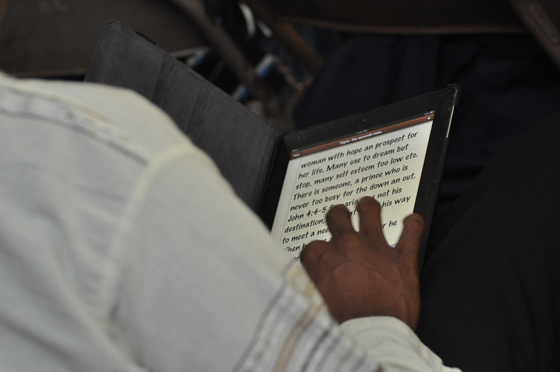 woman with hope an prospect for
her life. Many use to dream but
stop, many self esteem too low etc.
There is someone, a prince who is
never too busy for the down an out.
John 4:4-5 not his
destination. his way
to meet a he